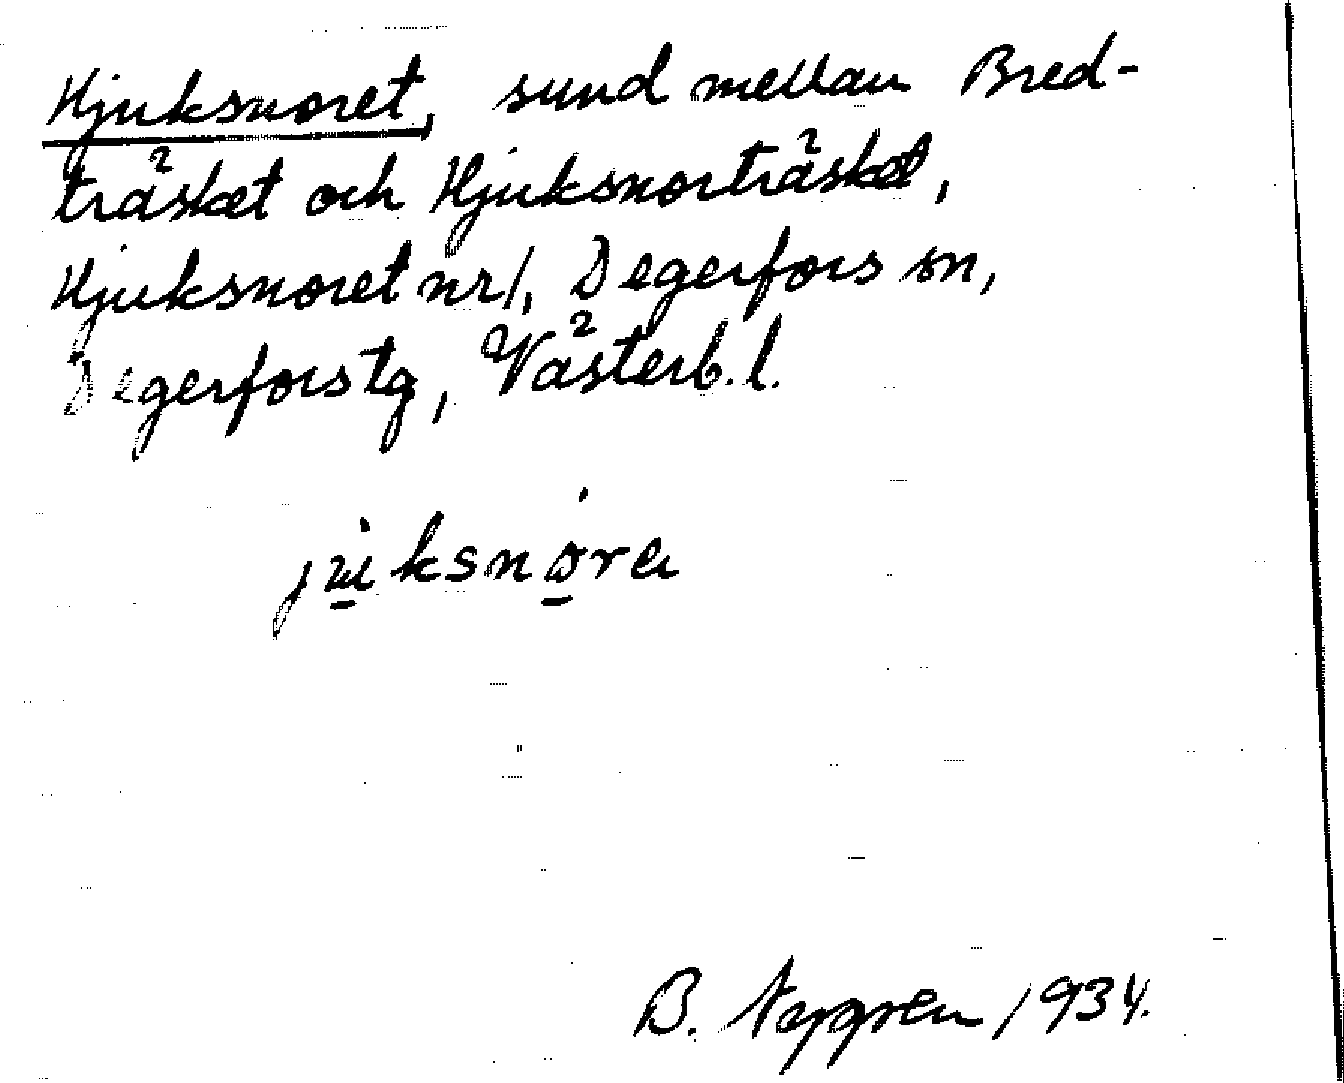 Hjuksnoret, sund mellan Bred-
träsket och Hjuksnorträsket,
Hjuksnoret nr 1, Degerfors sn,
Degerfors tg, Västerb. l.
B. Nygren 1934.